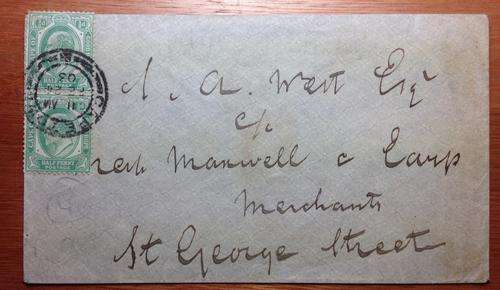 A. A. West Esq
c/o
Maxwell & Earp
Merchants
St George Street
HALF PENNY
CAPE
11 AM
03